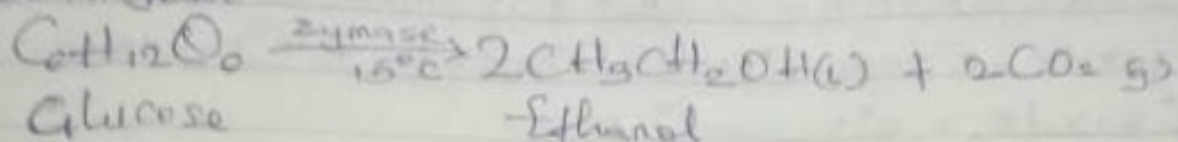 C₆H₁₂O₆ zymase/15°C → 2CH₃CH₂OH(l) + 2CO₂ g)
Glucose Ethanol